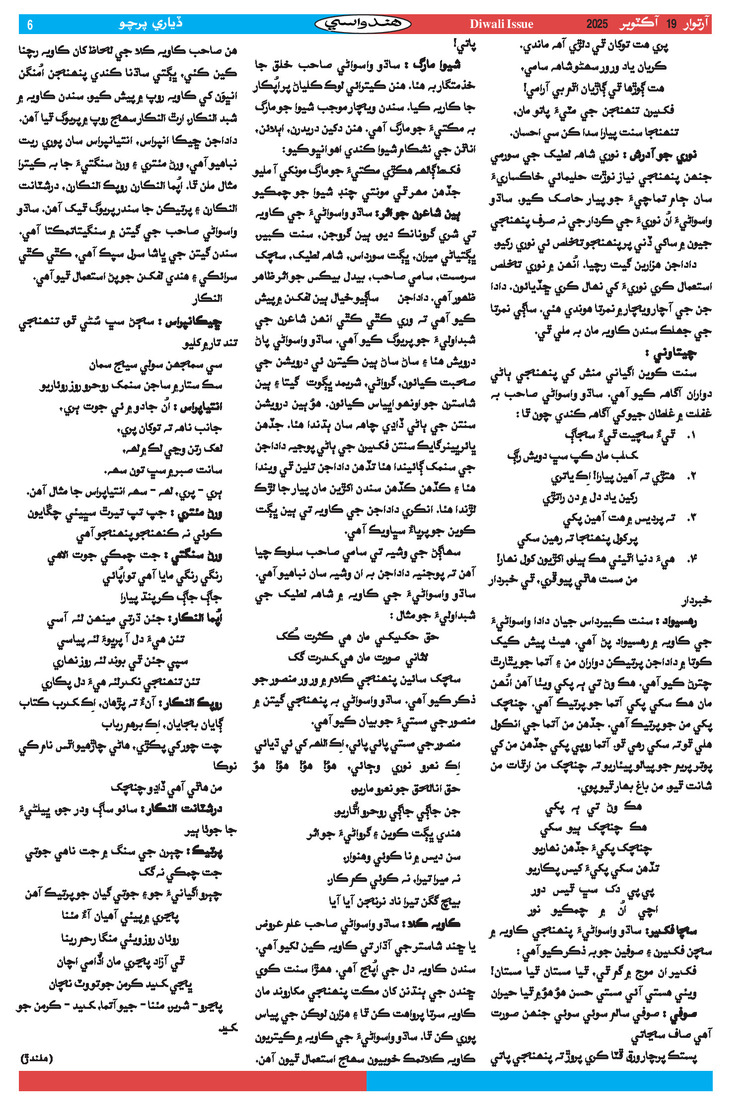 آرتوار 19 آڪٽوبر 2025
Diwali Issue
هندواسي
ڏياري پرچو
6
پري هت توکان ٿي دلڙي آهه ماندي.
ڪريان ياد ورور سهڻو شاهه سامي،
هت ڳوڙها ٿي ڳاڙيان اقم بي آرامي!
فڪيرن تنهنجن جي مٽيءَ پاتو مان،
تنهنجا سنت پيارا سدا ڪن سي احسان.
نوري جو آدرش : نوري شاهه لطيف جي سورمي
جنهن پنهنجي نياز نوڙت حليمائي خاڪساريءَ
سان ڄام تماچيءَ جو پيار حاصل ڪيو. ساڌو
واسواڻيءَ اُن نوريءَ جي ڪردار جي نه صرف پنهنجي
جيون ۾ ساکي ڏني پر پنهنجو تخلص ئي نوري رکيو.
داداجن هزارين گيت رچيا. اُنهن ۾ نوري تخلص
استعمال ڪري نوريءَ کي نهال ڪري ڇڏيائون. دادا
جن جي آچار ويچار ۾ نمرتا هوندي هئي. ساڳي نمرتا
جي جهلڪ سندن ڪاويه مان به ملي ٿي.
چيتاوني :
سنت ڪوين اگياني منش کي پنهنجي ٻاڻي
دواران آگاهه ڪيو آهي. ساڌو واسواڻي صاحب به
غفلت ۾ غلطان جيو کي آگاهه ڪندي چون ٿا :
۱. ٿيءُ سچيت ٿيءُ سڄاڳ
ڪلب مان ڪپ سڀ دويش رڳ
۲. هتڙي ته آهين پيارا! اِڪ ياتري
رکين ياد دل ۾ دن راتڙي
۳. ته پرديس ۾ هت آهين پکي
پر کول پنهنجا ته رهين سکي
۴. هيءَ دنيا اٿيئي هڪ ٻيلو، اکڙيون کول نهار!
من مست هاٿي پيو ڦري، ٿي خبردار
خبردار
رهسيواد : سنت ڪبيرداس جيان دادا واسواڻيءَ
جي ڪاويه ۾ رهسيواد پڻ آهي. هيٺ پيش ڪيل
ڪوتا ۾ داداجن پرتيڪن دواران من ۽ آتما جو يٿارٿ
چترڻ ڪيو آهي. هڪ وڻ تي به پکي ويٺا آهن اُنهن
مان هڪ سکي پکي آتما جو پرتيڪ آهي. چنچڪ
پکي من جو پرتيڪ آهي. جڏهن من آتما جي انڪول
هلي ٿو ته سکي رهي ٿو. آتما روپي پکي جڏهن من کي
پوتر پريم جو پيالو پيئاريو ته چنچڪ من ارقات من
شانت ٿيو. من باغ بهار ٿيو پوي.
هڪ وڻ تي به پکي
هڪ چنچڪ ٻيو سکي
چنچڪ پکيءَ جڏهن نهاريو
تڏهن سکي پکيءَ کيس پڪاريو
پي پي دک سڀ ٿيس دور
اچي اُن ۾ چمڪيو نور
سچا فڪير: ساڌو واسواڻيءَ پنهنجي ڪاويه ۾
سچن فڪيرن ۽ صوفين جو به ذڪر ڪيو آهي :
فڪير ان موج ۾ گم ٿي، ٿيا مستان ٿيا مستان!
ويئي هستي آئي مستي حسن هو هو ۾ ٿيا حيران
صوفي : صوفي سالم سوئي سوئي جنهن صورت
آهي صاف سڃاتي
پستڪ پرچار ورق ڦٽا ڪري پروڙ ته پنهنجي پاتي
پاتي!
شيوا مارگ : ساڌو واسواڻي صاحب خلق جا
خدمتگار به هئا. هنن ڪيترائي لوڪ ڪلياڻ پراُپڪار
جا ڪاريه ڪيا. سندن ويچار موجب شيوا جو مارگ
به مڪتيءَ جو مارگ آهي. هنن دکين دريدرن، اپلائن،
اناٿن جي نشڪام شيوا ڪندي اهو انڀو ڪيو:
فڪط ڳالهه هڪڙي مڪتيءَ جو مارگ مونکي آ مليو
جڏهن مهر ٿي مونتي چنڊ شيوا جو چمڪيو
ٻين شاعرن جو اثر: ساڌو واسواڻيءَ جي ڪاويه
تي شري گرونانڪ ديو، ٻين گروجن، سنت ڪبير،
ڀڳتياڻي ميران، ڀڳت سورداس، شاهه لطيف، سچل
سرمست، سامي صاحب، بيدل بيڪس جو اثر ظاهر
ظهور آهي. داداجن ساڳيو خيال ٻين لفظن ۾ پيش
ڪيو آهي ته وري ڪٿي ڪٿي انهن شاعرن جي
شبداوليءَ جو پريوگ ڪيو آهي. ساڌو واسواڻي پاڻ
درويش هئا ۽ ساڻ ساڻ ٻين ڪيترن ئي درويشن جي
صحبت ڪيائون، گرواڻي، شريمد ڀڳوت گيتا ۽ ٻين
شاسترن جو اونهو اڀياس ڪيائون. هو ٻين درويشن
سنتن جي ٻاڻي ڏاڍي چاهه سان ٻڌندا هئا. جڏهن
ڀائر پينر گايڪ سنتن فڪيرن جي ٻاڻي پوڄيه داداجن
جي سنمک ڳائيندا هئا تڏهن داداجن تلين ٿي ويندا
هئا ۽ ڪڏهن ڪڏهن سندن اکڙين مان پيار جا لڙڪ
لڙندا هئا. انڪري داداجن جي ڪاويه تي ٻين ڀڳت
ڪوين جو پرڀاءُ سڀاويڪ آهي.
سهاڳڻ جي وشيه تي سامي صاحب سلوڪ چيا
آهن ته پوڄنيه داداجن به ان وشيه سان نباهيو آهي.
ساڌو واسواڻيءَ جي ڪاويه ۾ شاهه لطيف جي
شبداوليءَ جو مثال :
حق حڪيڪي مان هي ڪثرت ڪُک
لاثاني صورت مان هي ڪدرت گک
سچڪ سائين پنهنجي ڪلام ۾ ورور منصور جو
ذڪر ڪيو آهي. ساڌو واسواڻي به پنهنجي گيتن ۾
منصور جي مستيءَ جو بيان ڪيو آهي.
منصور جي مستي پائي پائي، اِڪ اللهه کي ئي ڌيائي
اِڪ نعرو نوري وڄائي، هو! هو! هو! هو
حق انالحق جو نعرو ماريو.
جن جاڳي جاڳي روح رو اُڦاريو.
هندي ڀڳت ڪوين ۽ گرواڻيءَ جو اثر
سن ديس ۾ نا ڪوئي وهنوار،
نہ ميرا تيرا، نہ ڪوئي ڪم ڪار،
بياڇ گگن تيرا ناد نرنڃن آيا آيا
ڪاويه ڪلا : ساڌو واسواڻي صاحب علم عروض
يا ڇند شاستر جي آڌار تي ڪاويه ڪين لکيو آهي.
سندن ڪاويه دل جي اُپڄ آهي. هڪڙا سنت ڪوي
ڇندن جي ٻنڌنن کان مڪت پنهنجي مڪاروند مان
ڪاويه سرتا پرواهت ڪن ٿا ۽ هزارن لوڪن جي پياس
پوري ڪن ٿا. ساڌو واسواڻيءَ جي ڪاويه ۾ ڪيتريون
ڪاويه ڪلاتمڪ خوبيون سهڄ استعمال ٿيون آهن.
هن صاحب ڪاويه ڪلا جي لحاظ کان ڪاويه رچنا
ڪين ڪئي، ڀڳتي ساڌنا ڪندي پنهنجن اُمنگن
انڀون کي ڪاويه روپ ۾ پيش ڪيو. سندن ڪاويه ۾
شبد النڪار، ارٿ النڪار سهڄ روپ ۾ پريوگ ٿيا آهن.
داداجن ڇيڪا انپراس، انتيانپراس سان پوري ريت
نباهيو آهي، ورڻ مئتري ۽ ورڻ سنگتيءَ جا به ڪيترا
مثال ملن ٿا. اُپما النڪارن روپڪ النڪارن، درشٽانت
النڪارن ۽ پرتيڪن جا سندر پريوگ ٿيل آهن. ساڌو
واسواڻي صاحب جي گيتن ۾ سنگيتاتمڪتا آهي.
سندن گيتن جي ڀاشا سرل سهڪ آهي. ڪٿي ڪٿي
سرائڪي ۽ هندي لفظن جو پڻ استعمال ٿيو آهي.
النڪار
ڇيڪانپراس : سڄڻ سڀ سُڻي ٿو، تنهنجي
تند تار ۾ کليو
سي سمجهن سولي سيڄ سمان
سڪ ستار ۾ ساجن سنمک روح رو روئاريو
انتياپراس : اُن جادو ۾ ئي جوت ٻري،
جانب ناهه ته توکان پري،
لعل رتن وڃي لک ۾ لهه،
سانت صبر ۾ سڀ تون سهه.
ٻري - پري، لهه - سهه انتياپراس جا مثال آهن.
ورڻ مئتري : جپ تپ تيرٿ سڀيئي ڇڳايون
ڪوئي نہ ڪنهنجو پنهنجو آهي
ورڻ سنگتي : جت چمڪي جوت الاهي
رنگي رنگي مايا آهي تو اُپائي
جاڳ جاڳ ڪر پنڌ پيارا
اُپما النڪار: جئن ڌرتي مينهن لئه آسي
تئن هيءَ دل آ پريوءَ لئه پياسي
سپي جئن ٿي بوند لئه روز نهاري
تئن تنهنجي نڪر لئه هيءَ دل پڪاري
روپڪ النڪار : آنءُ تہ پڙهان، اِڪ درٻ ڪتاب
ڳايان بجايان، اِڪ برهم رباب
چت چور کي پڪڙي، هاڻي چاڙهيو اٿس نام کي
نوڪا
من هاٿي آهي ڏاڍو چنچڪ
درشٽانت النڪار : سائو ساڳ ودر جو، ڀيلڻيءَ
جا جوٺا ٻير
پرتيڪ : چٻرن جي سنگ ۾ جت ناهي جوتي
جت چمڪي نہ گک
چٻرو اگيانيءَ جو ۽ جوتي گيان جو پرتيڪ آهن
پڃري ۾ پيئي آهيان آءٌ مئنا
روئان روز ويئي منگا رحم رينا
ٿي آزاد پڃري مان اُڏامي اچان
ڀڃي ڪيد ڪرمن جو تو وٽ نچان
پڃرو - شرير، مئنا - جيو آتما، ڪيد - ڪرمن جو
ڪيد
(هلندڙ)